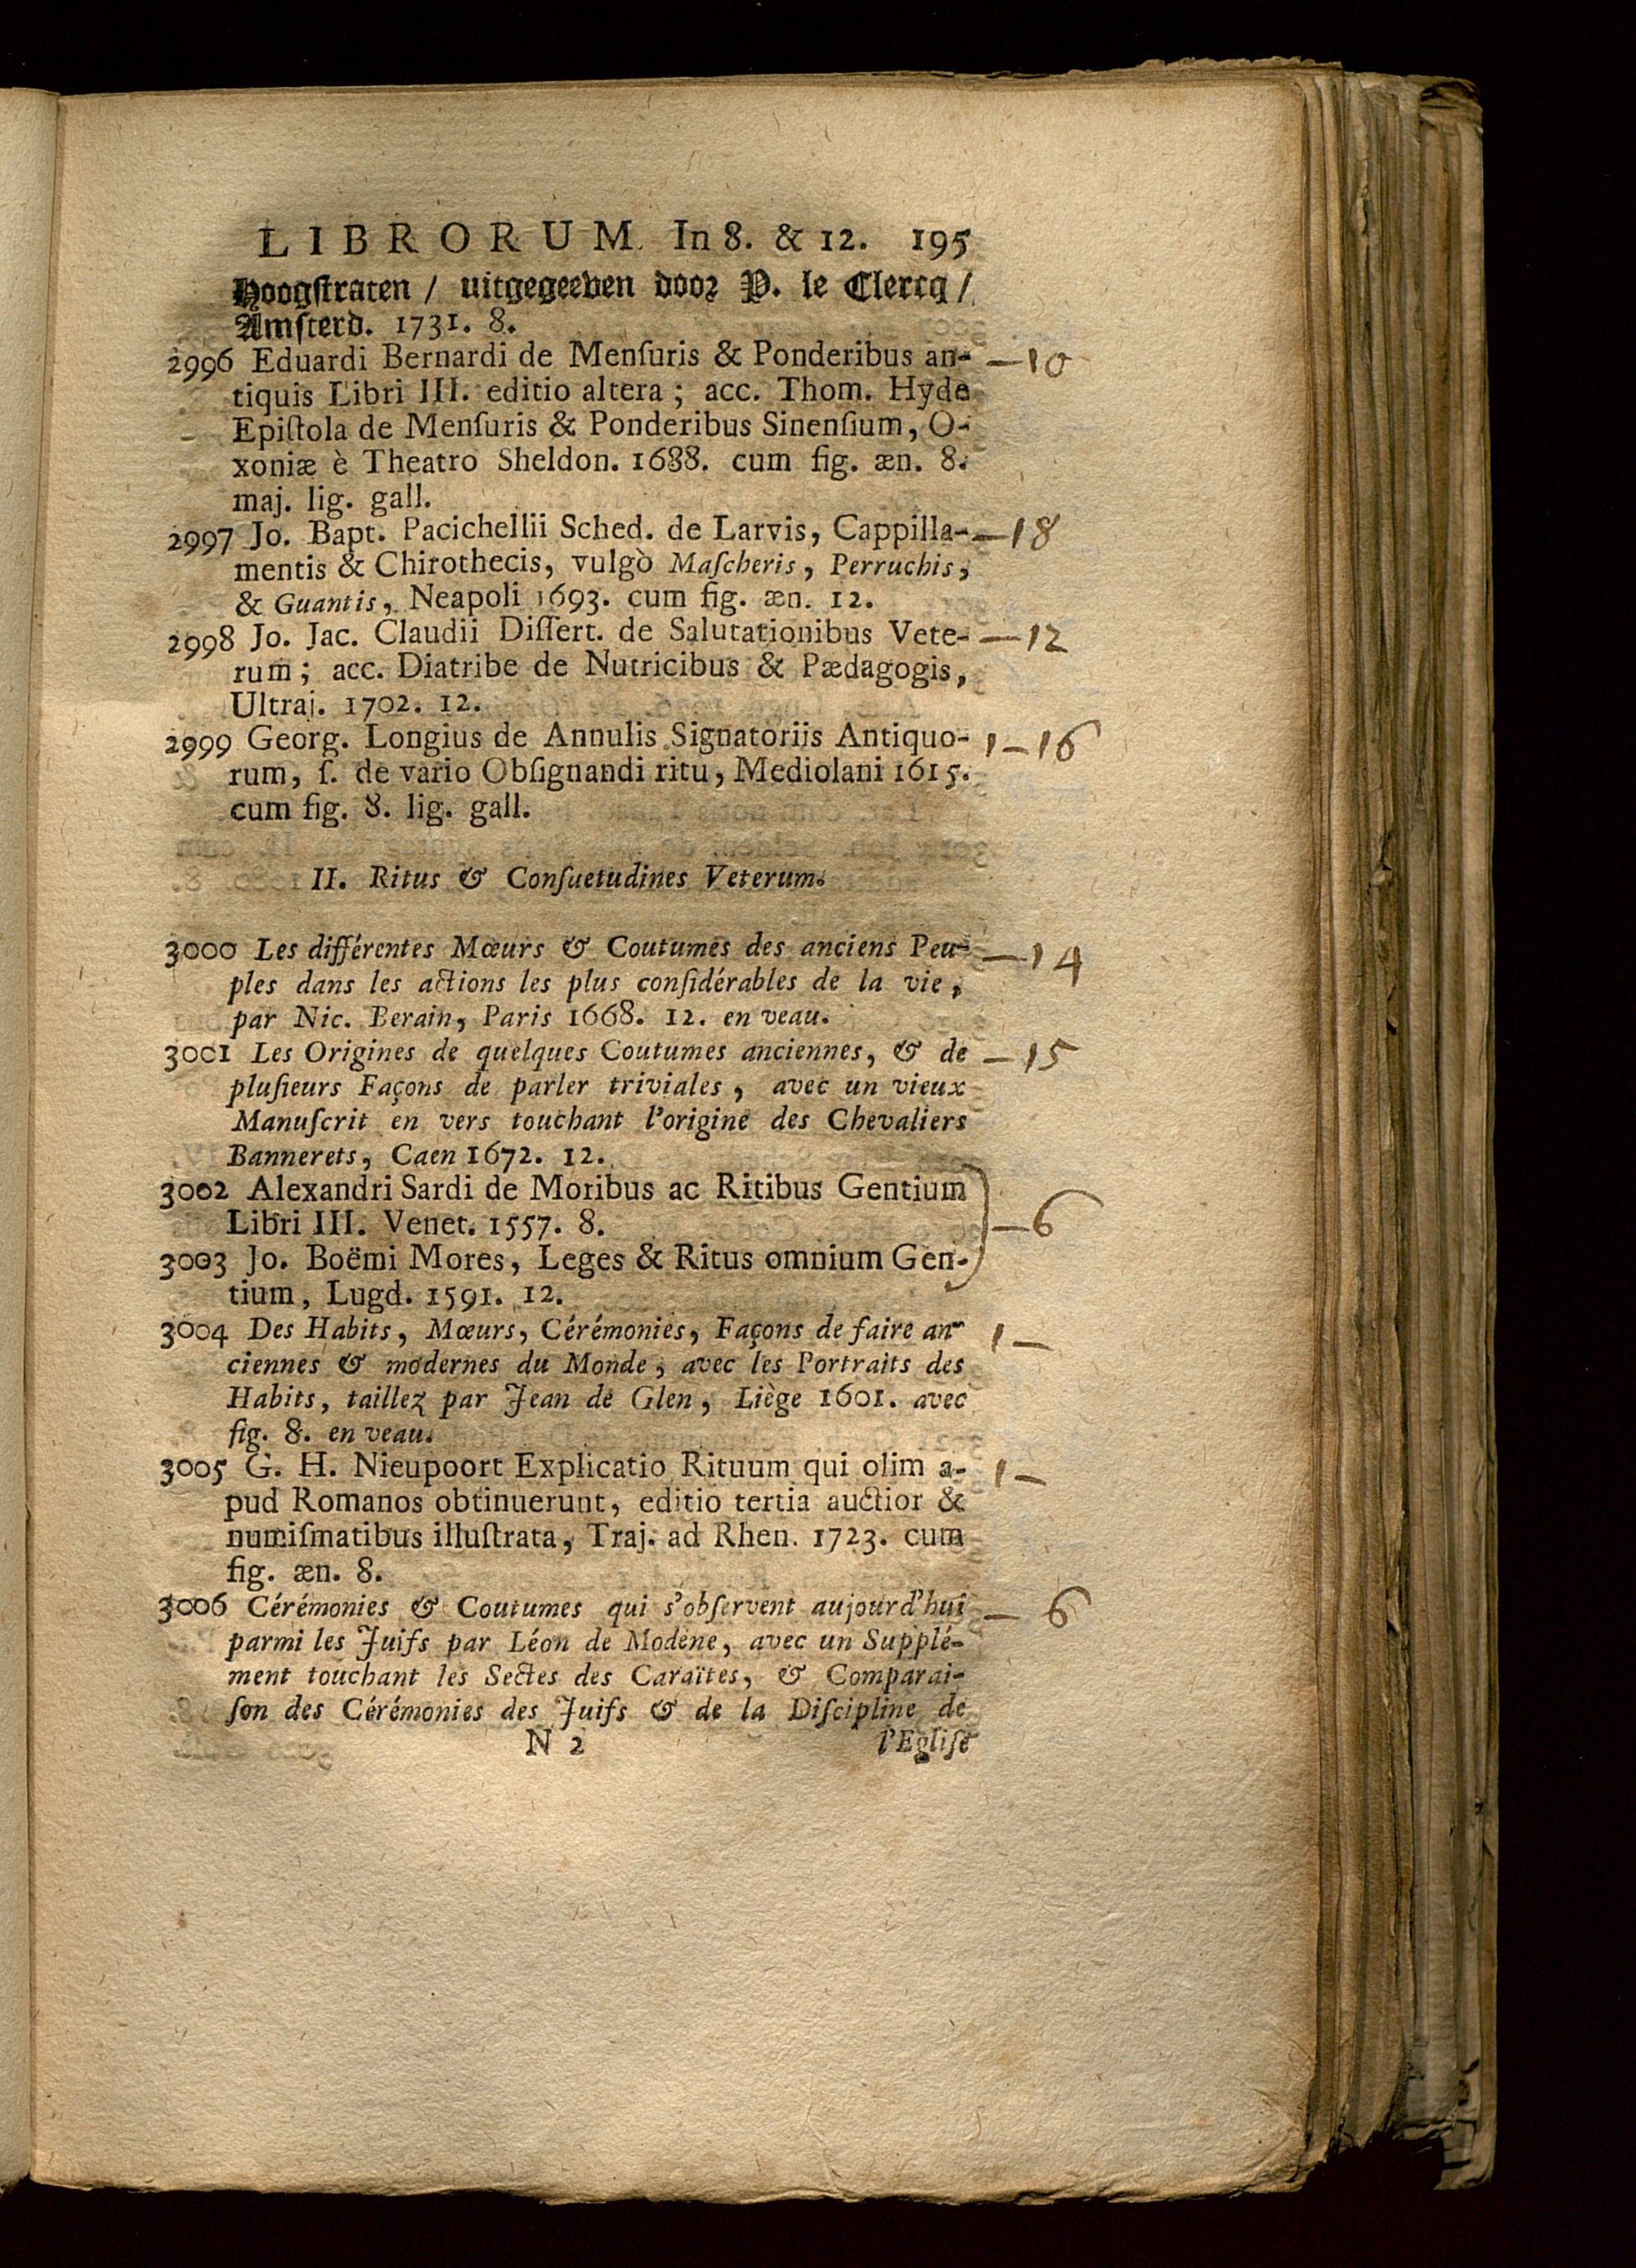 LIBRORUM. In 8. & 12. 195
Hoogſtraten / uitgegeeven door P. le Clercq /
Amſterd. 1731. 8.
2996 Eduardi Bernardi de Menſuris & Ponderibus an- —10
tiquis Libri III. editio altera; acc. Thom. Hyde
Epiſtola de Menſuris & Ponderibus Sinenſium, O-
xoniæ è Theatro Sheldon. 1688. cum fig. æn. 8.
maj. lig. gall.
2997 Jo. Bapt. Pacichellii Sched. de Larvis, Cappilla- —18
mentis & Chirothecis, vulgò Maſcheris, Perruchis,
& Guantis, Neapoli 1693. cum fig. æn. 12.
2998 Jo. Jac. Claudii Diſſert. de Salutationibus Vete- —12
rum; acc. Diatribe de Nutricibus & Pædagogis,
Ultraj. 1702. 12.
2999 Georg. Longius de Annulis Signatoriis Antiquo- 1—16
rum, ſ. de vario Obſignandi ritu, Mediolani 1615.
cum fig. 8. lig. gall.
II. Ritus & Conſuetudines Veterum.
3000 Les différentes Mœurs & Coutumes des anciens Peu- —14
ples dans les actions les plus conſidérables de la vie,
par Nic. Berain, Paris 1668. 12. en veau.
3001 Les Origines de quelques Coutumes anciennes, & de —15
pluſieurs Façons de parler triviales, avec un vieux
Manuſcrit en vers touchant l'origine des Chevaliers
Bannerets, Caen 1672. 12.
3002 Alexandri Sardi de Moribus ac Ritibus Gentium
Libri III. Venet. 1557. 8. —6
3003 Jo. Boëmi Mores, Leges & Ritus omnium Gen-
tium, Lugd. 1591. 12.
3004 Des Habits, Mœurs, Cérémonies, Façons de faire an- 1—
ciennes & modernes du Monde, avec les Portraits des
Habits, taillez par Jean de Glen, Liège 1601. avec
fig. 8. en veau.
3005 G. H. Nieupoort Explicatio Rituum qui olim a- 1—
pud Romanos obtinuerunt, editio tertia auctior &
numiſmatibus illuſtrata, Traj. ad Rhen. 1723. cum
fig. æn. 8.
3006 Cérémonies & Coutumes qui s'obſervent aujourd'hui — 6
parmi les Juifs par Léon de Modène, avec un Supplé-
ment touchant les Sectes des Caraïtes, & Comparai-
ſon des Cérémonies des Juifs & de la Diſcipline de
N 2 l'Egliſe